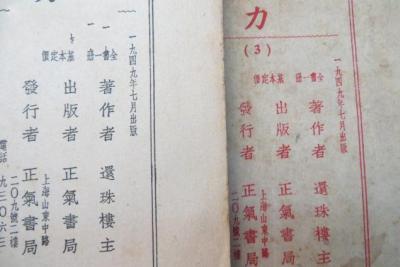 一九四九年七月出版
全書一冊 基本定價
著作者 還珠樓主
出版者 正氣書局
發行者 正氣書局
上海山東中路
二〇九號二樓
電話 九三〇六三
力
(3)
一九四九年七月出版
全書一冊 基本定價
著作者 還珠樓主
出版者 正氣書局
發行者 正氣書局
上海山東中路
二〇九號二樓